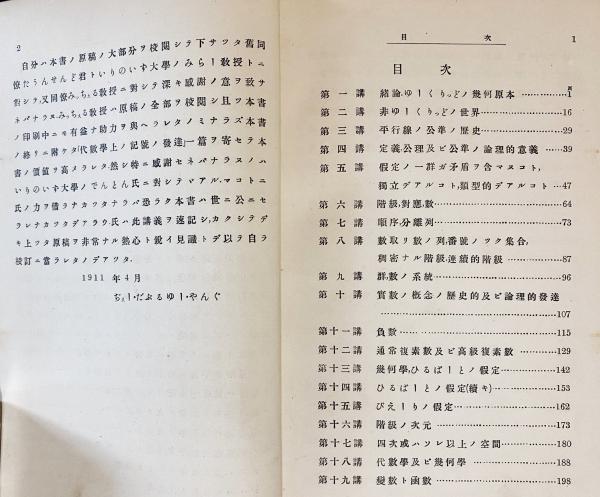 2
自分ハ本書ノ原稿ノ大部分ヲ校閲シテ下サツタ舊同
僚たうんせんど君トいりのいす大學ノみらー教授トニ
對シテ,又同僚みっちぇる教授ニ對シテ深キ感謝ノ意ヲ致サ
ネバナラヌ.みっちぇる教授ハ原稿ノ全部ヲ校閲シ且ツ本書
ノ印刷中ニモ有益ナ助力ヲ與ヘラレタノミナラズ本書
ノ終リニ附ケタ「代數學上ノ記號ノ發達」一篇ヲ寄セテ本
書ノ價値ヲ高メラレタ.然シ特ニ感謝セネバナラヌノハ
いりのいす大學ノでんとん氏ニ對シテマアル.マコトニ
氏ノ力ヲ借ラナカツタナラバ恐ラク本書ハ世ニ公ニセ
ラレナカツタデアラウ.氏ハ此講義ヲ速記シ,カクシテデ
キ上ツタ原稿ヲ非常ナル熱心ト鋭イ見識トデ以テ自ラ
校訂ニ當ラレタノデアツタ.
1911 年 4 月
ぢぇー・だぶるゆー・やんぐ
目 次 1
目 次
頁
第一講 緒論.ゆーくりっどノ幾何原本 1
第二講 非ゆーくりっどノ世界 16
第三講 平行線ノ公準ノ歴史 29
第四講 定義公理及ビ公準ノ論理的意義 39
第五講 假定ノ一群ガ矛盾ヲ含マヌコト,
獨立デアルコト,類型的デアルコト 47
第六講 階級,對應,數 64
第七講 順序,分離列 73
第八講 數取リ數ノ列,番號ノツク集合,
稠密ナル階級,連續的階級 87
第九講 群,數ノ系統 96
第十講 實數ノ概念ノ歴史的及ビ論理的發達
107
第十一講 負數 115
第十二講 通常複素數及ビ高級複素數 129
第十三講 幾何學,ひるばーとノ假定 142
第十四講 ひるばーとノ假定(續キ) 153
第十五講 ぴえーりノ假定 162
第十六講 階級ノ次元 173
第十七講 四次或ハソレ以上ノ空間 180
第十八講 代數學及ビ幾何學 188
第十九講 變數ト函數 198